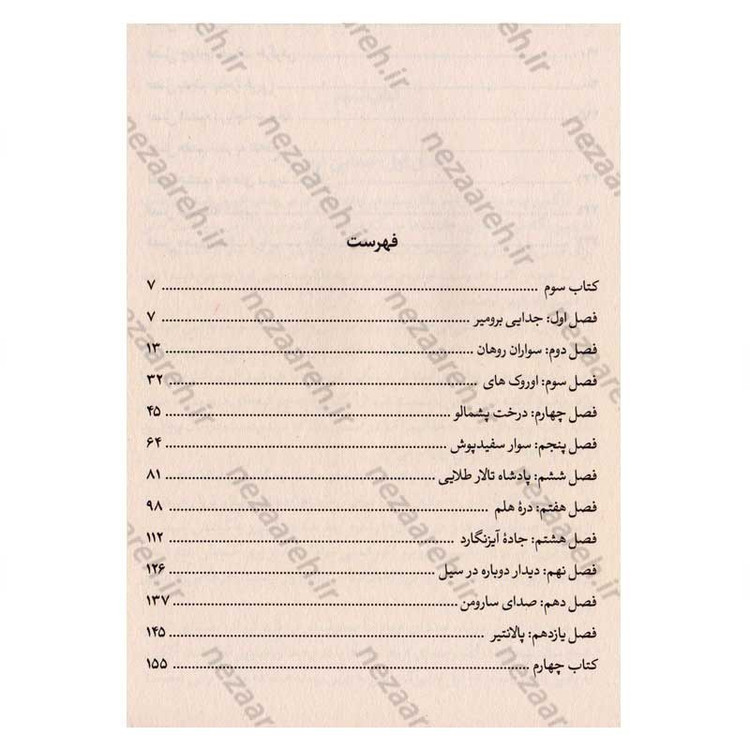 فهرست
کتاب سوم ........ ۷
فصل اول: جدایی برومیر ........ ۷
فصل دوم: سواران روهان ........ ۱۳
فصل سوم: اوروک های ........ ۳۲
فصل چهارم: درخت پشمالو ........ ۴۵
فصل پنجم: سوار سفیدپوش ........ ۶۴
فصل ششم: پادشاه تالار طلایی ........ ۸۱
فصل هفتم: درهٔ هلم ........ ۹۸
فصل هشتم: جادهٔ آیزنگارد ........ ۱۱۲
فصل نهم: دیدار دوباره در سیل ........ ۱۲۶
فصل دهم: صدای سارومن ........ ۱۳۷
فصل یازدهم: پالانتیر ........ ۱۴۵
کتاب چهارم ........ ۱۵۵
nezaareh.ir